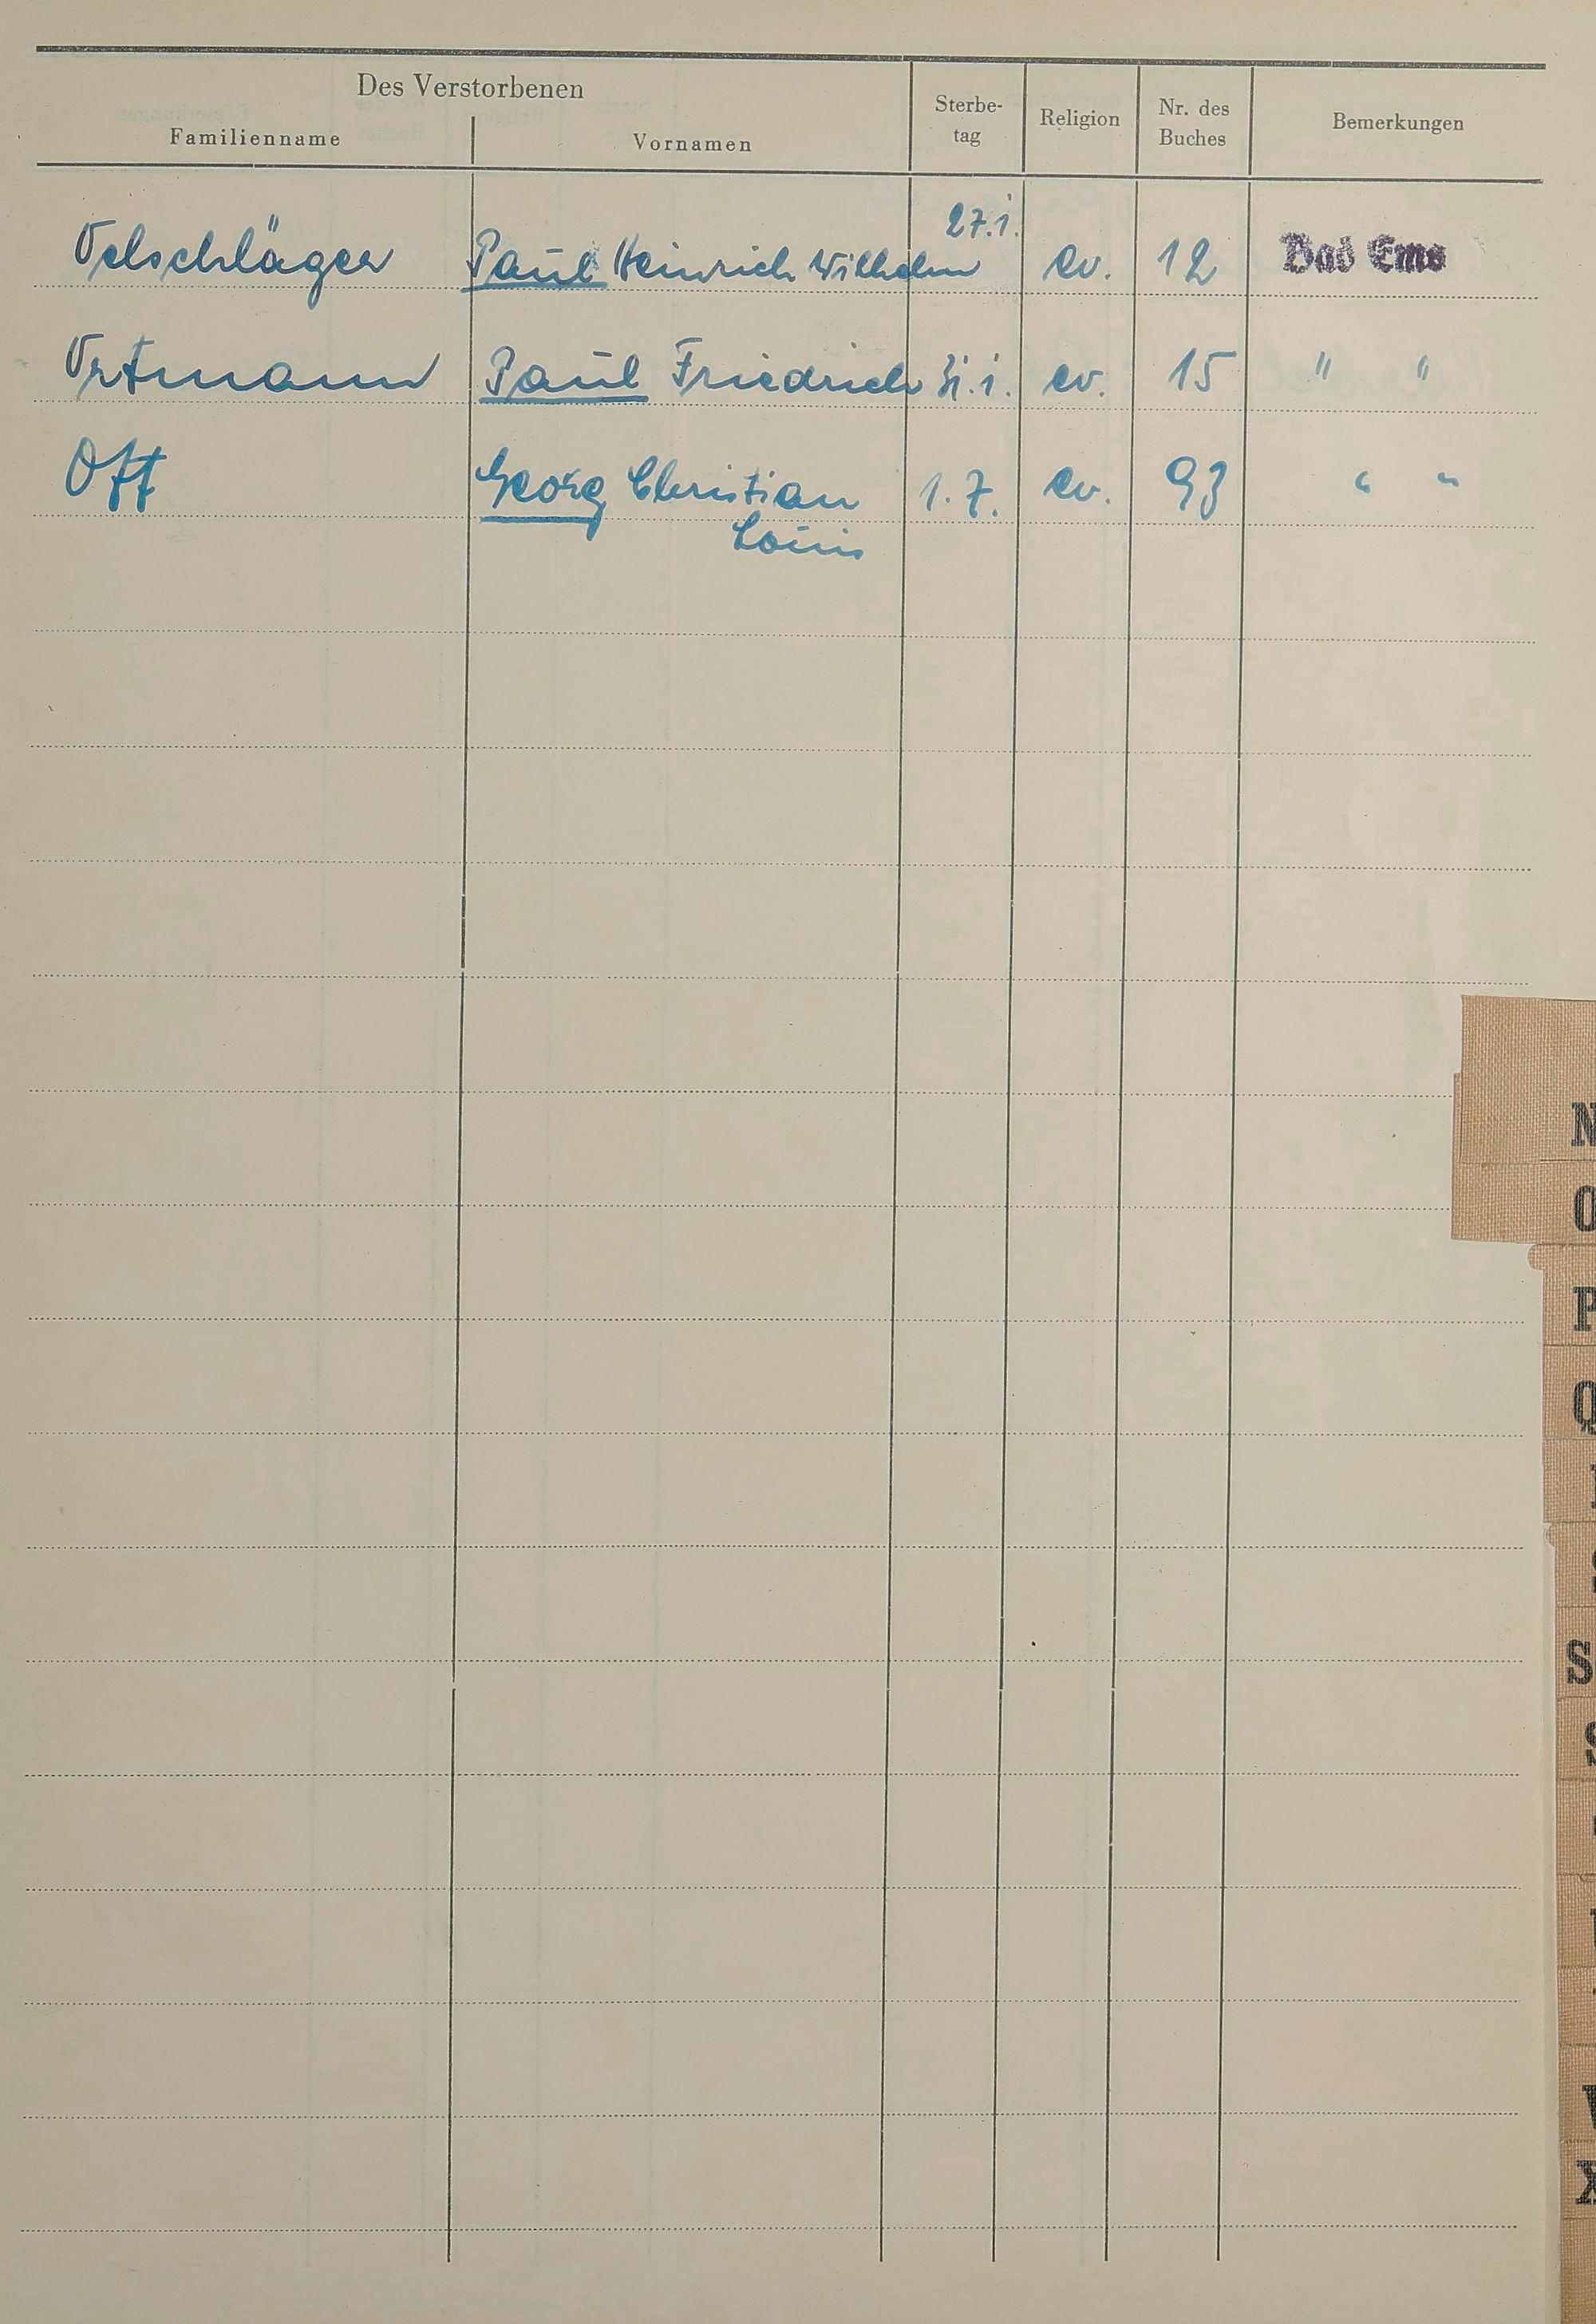 Des Verstorbenen
Familienname Vornamen Sterbe-tag Religion Nr. des Buches Bemerkungen
Oelschläger Paul Heinrich Wilhelm 27.1. ev. 12 Bad Ems
Ortmann Paul Friedrich 31.1. ev. 15 " "
Ott Georg Christian 1.7. ev. 93 " "
Louis
N
O
P
Q
S
S
X